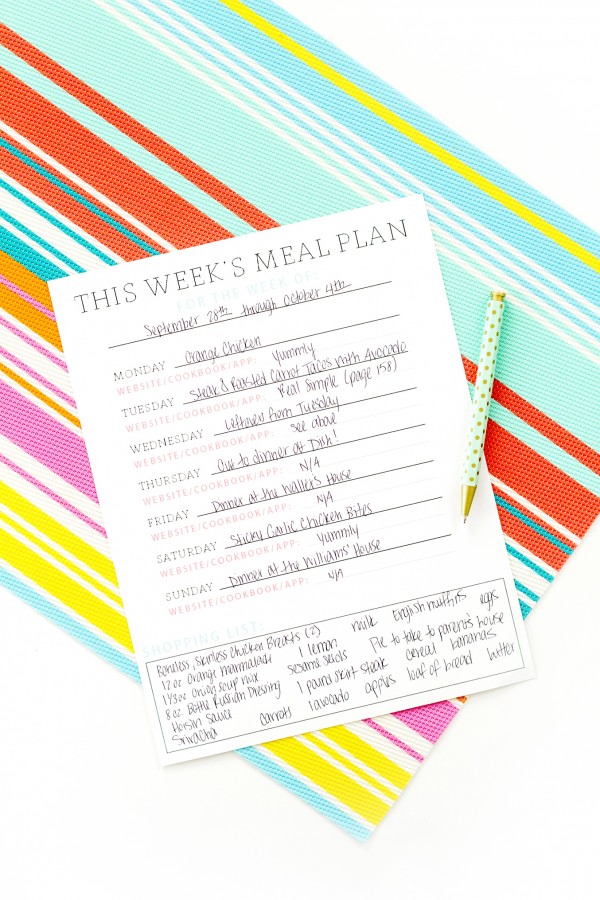 THIS WEEK'S MEAL PLAN
FOR THE WEEK OF:
September 28th through October 4th
MONDAY Orange Chicken
WEBSITE/COOKBOOK/APP: Yummly
TUESDAY Steak & Roasted Carrot Tacos with Avocado
WEBSITE/COOKBOOK/APP: Real Simple (page 158)
WEDNESDAY Leftover from Tuesday
WEBSITE/COOKBOOK/APP: See above
THURSDAY Out to dinner at Dish!
WEBSITE/COOKBOOK/APP: N/A
FRIDAY Dinner at the Waller's House
WEBSITE/COOKBOOK/APP: N/A
SATURDAY Sticky Garlic Chicken Bites
WEBSITE/COOKBOOK/APP: Yummly
SUNDAY Dinner at the Williams' House
WEBSITE/COOKBOOK/APP: N/A
SHOPPING LIST:
Boneless, Skinless Chicken Breasts (2) 1 lemon milk English muffins eggs
12 oz Orange marmalade sesame seeds Pie to take to parent's house
1 1/3 oz Onion soup mix 1 pound skirt steak cereal bananas
8 oz Bottle Russian Dressing 1 avocado apples loaf of bread butter
Hoisin sauce carrots
Sriracha